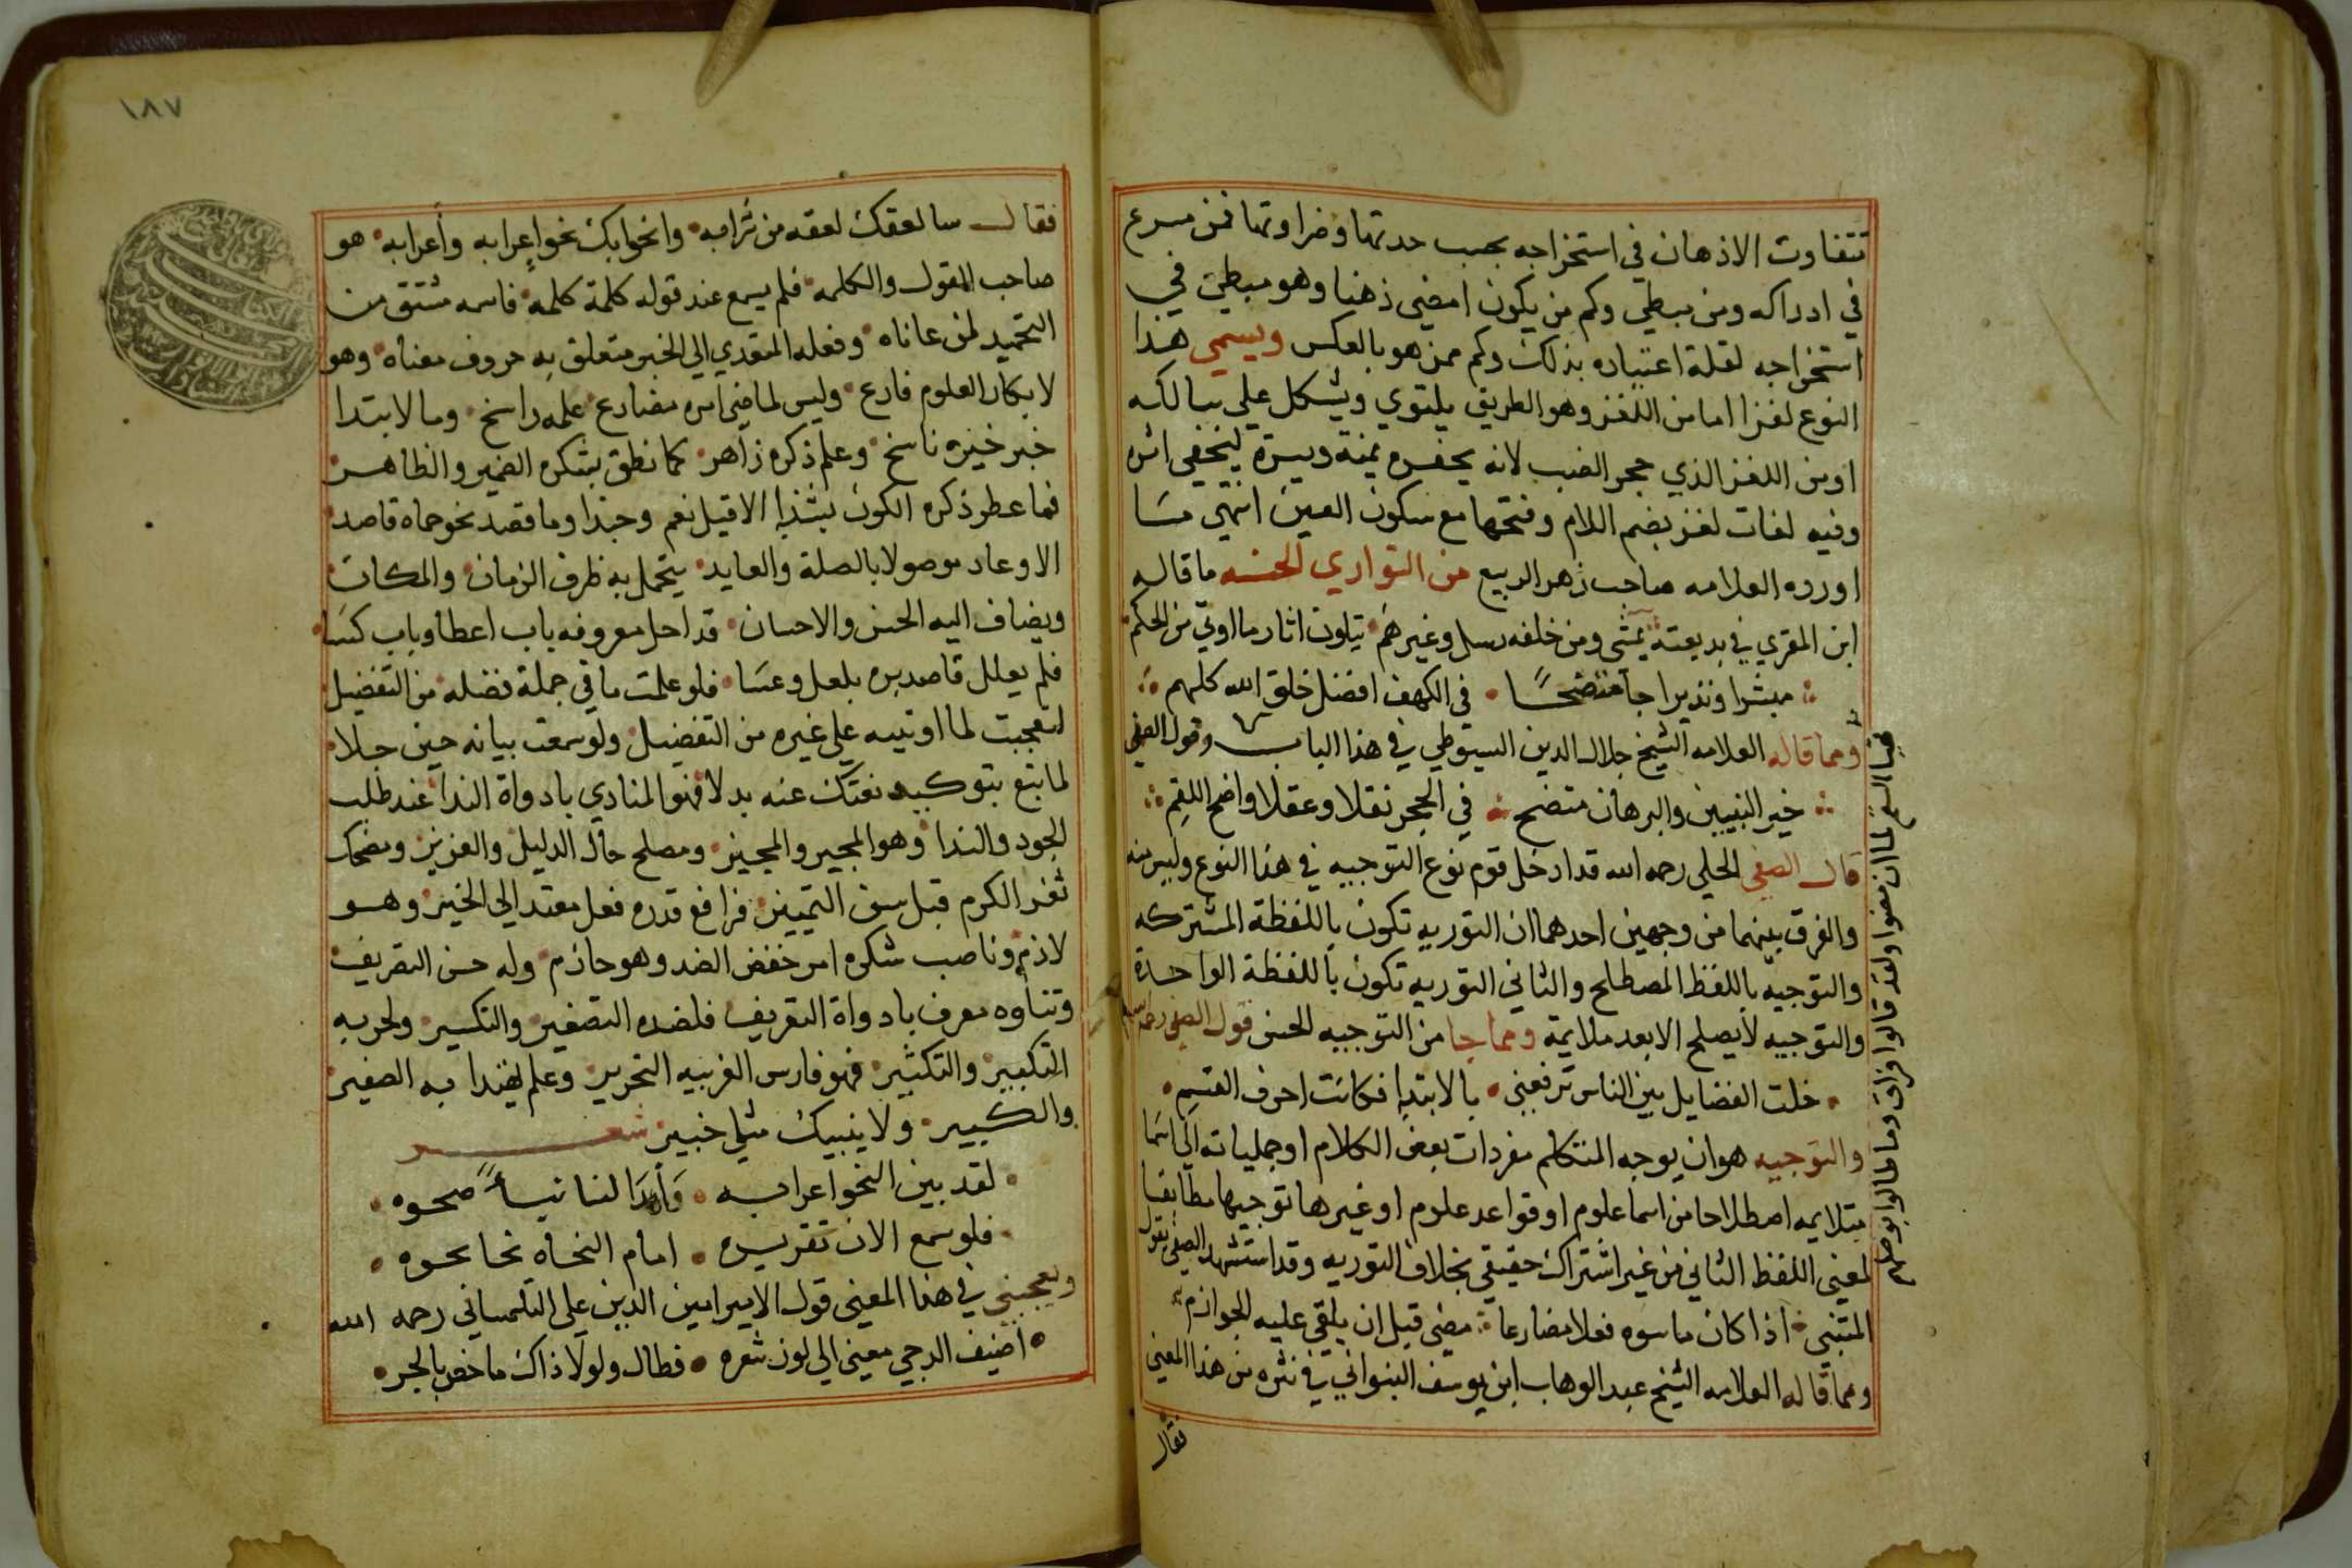 تتفاوت الاذهان في استخراجه بحسب حدتها وضراوتها فمن مسرع
في ادراكه ومن مبطي وكم من يكون امضي ذهنا وهو مبطي في
استخراجه لقلة اعتياده بذلك وكم ممن هو بالعكس ويسمي هذا
النوع لغزا اما من اللغز وهو الطريق يلتوي ويشكل علي سالكه
او من اللغز الذي حجر الضب لانه يحفره يمنة ويسرة ليخفي اثره
وفيه لغات لغز بضم اللام وفتحها مع سكون الغين انتهي مسا
اورده العلامه صاحب زهر الربيع من التواري الحسنه ما قاله
ابن المقري في بديعته يمشي ومن خلفه رسل وغيرهم يتلون اثار ما اوتي من الحكم
مبشرا ونذيرا جا متضحًا في الكهف افضل خلق الله كلهم
ومما قاله العلامه الشيخ جلال الدين السيوطي في هذا الباب وقول الصفي
خير النبيين والبرهان متضح في الحجر نقلا وعقلا واضح اللقم
قال الصفي الحلي رحمه الله قد ادخل قوم نوع التوجيه في هذا النوع وليس منه
والفرق بينهما من وجهين احدهما ان التوريه تكون باللفظة المشتركه
والتوجيه باللفظ المصطلح والثاني التوريه تكون باللفظة الواحدة
والتوجيه لا يصلح الا بعد ملايمة ومما جا من التوجيه الحسن قول الصفي رحمه الله
خلت الفضايل بين الناس ترفعني بالابتدا فكانت احرف القسم
والتوجيه هو ان يوجه المتكلم مفردات بعض الكلام او جملياته الي اسما
متلايمه اصطلاحا من اسما علوم او قواعد علوم او غيرها توجيها مطابقا
لمعني اللفظ الثاني من غير اشتراك حقيقي بخلاف التوريه وقد استشهد الصفي بقول
المتنبي اذا كان ما سوه فعلا مضارعا مضي قبل ان يلقي عليه الجوازم
ومما قاله العلامه الشيخ عبد الوهاب ابن يوسف البنواني في نثره من هذا المعني
فقال
فقال سا لعقك لعقه من شرابه وانحوا بك نحو اعرابه وأعرابه هو
صاحب المقول والكلمه فلم يسمع عند قوله كلمة كلمه فاسمه مشتق من
التحميد لمن عاناه وفعله المتعدي الي الخبر متعلق به حروف معناه وهو
لابكار العلوم فارع وليس لماضي امره مضارع علمه راسخ وما لابتدا
خبر خيره ناسخ وعلم ذكره زاهر كما نطق بشكره الضمير والظاهر
فما عطر ذكره الكون بشذا الا قيل نعم وحبذا وما قصد نحو حماه قاصد
الا وعاد موصولا بالصلة والعايد يتحمل به ظرف الزمان والمكان
ويضاف اليه الحسن والاحسان قد احل معروفه باب اعطا وباب كسا
فلم يعلل قاصديره بلعل وعسا فلو علمت ما في جملة فضله من التفضيل
لتعجبت لما اوتيه علي غيره من التفضيل ولو سمعت بيانه حين جلا
لما تبع بتوكبيد نعتك عنه بدلا فهو المنادي بادواة الندا عند طلب
الجود والندا وهو المجير والمجيز ومصلح حال الذليل والعزيز ومضحك
ثغر الكرم قبل سن التمييز فرافع قدره فعل معتد الي الخير وهو
لازم وناصب شكره امر خفض الضد وهو جازم وله حسن التصريف
وتناوه معرف بادواة التعريف فلضده التصغير والتكسير ولحزبه
التكبير والتكثير فهو فارس الغربيه التحرير وعلم يهتدا به الصغير
والكبير ولا ينبيك مثل خبير شعر
لقد بين النحو اعرابه وأبدا لنا نبأً صحوه
فلو سمع الان تقريره امام النحاه نحا نحوه
ويعجبني في هذا المعني قول الامير امين الدين علي التلمساني رحمه الله
اضيف الدجي معني الي لون شعره فطال ولولا ذاك ما خص بالجر
١٨٧